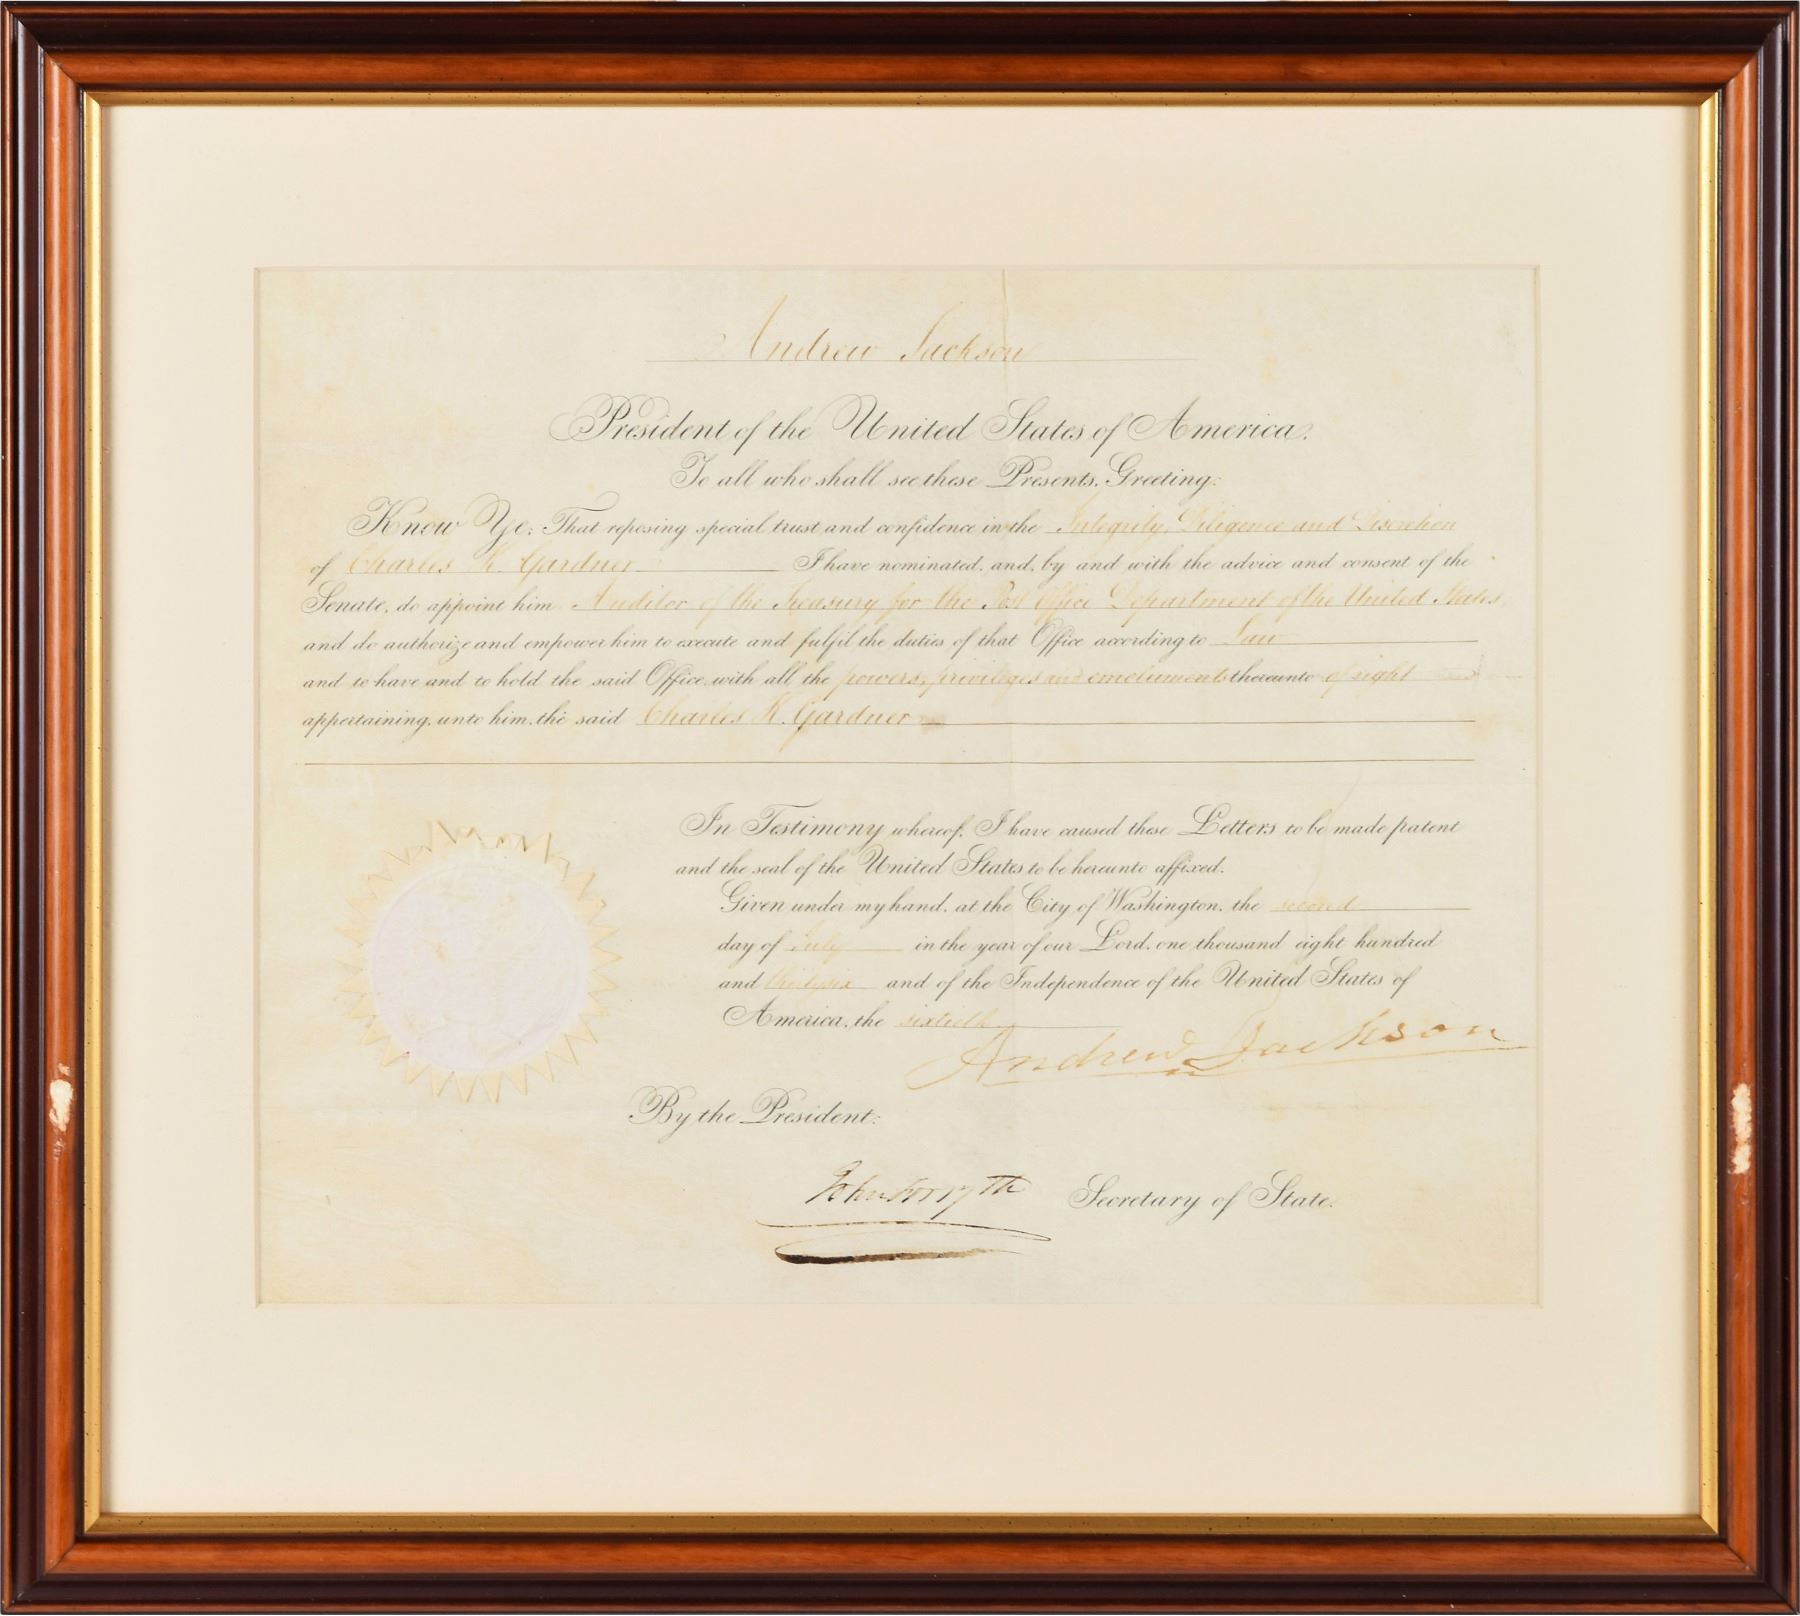 Andrew Jackson
President of the United States of America.
To all who shall see these Presents, Greeting:
Know Ye; That reposing special trust and confidence in the Integrity, Diligence and Discretion
of Charles K. Gardner I have nominated, and, by and with the advice and consent of the
Senate, do appoint him Auditor of the Treasury for the Post Office Department of the United States,
and do authorize and empower him to execute and fulfil the duties of that Office according to Law
and to have and to hold the said Office, with all the powers, privileges and emoluments thereunto of right
appertaining, unto him, the said Charles K. Gardner
In Testimony whereof, I have caused these Letters to be made patent
and the seal of the United States to be hereunto affixed.
Given under my hand, at the City of Washington, the second
day of July in the year of our Lord, one thousand eight hundred
and thirty six and of the Independence of the United States of
America, the sixtieth
Andrew Jackson
By the President:
John Forsyth Secretary of State.